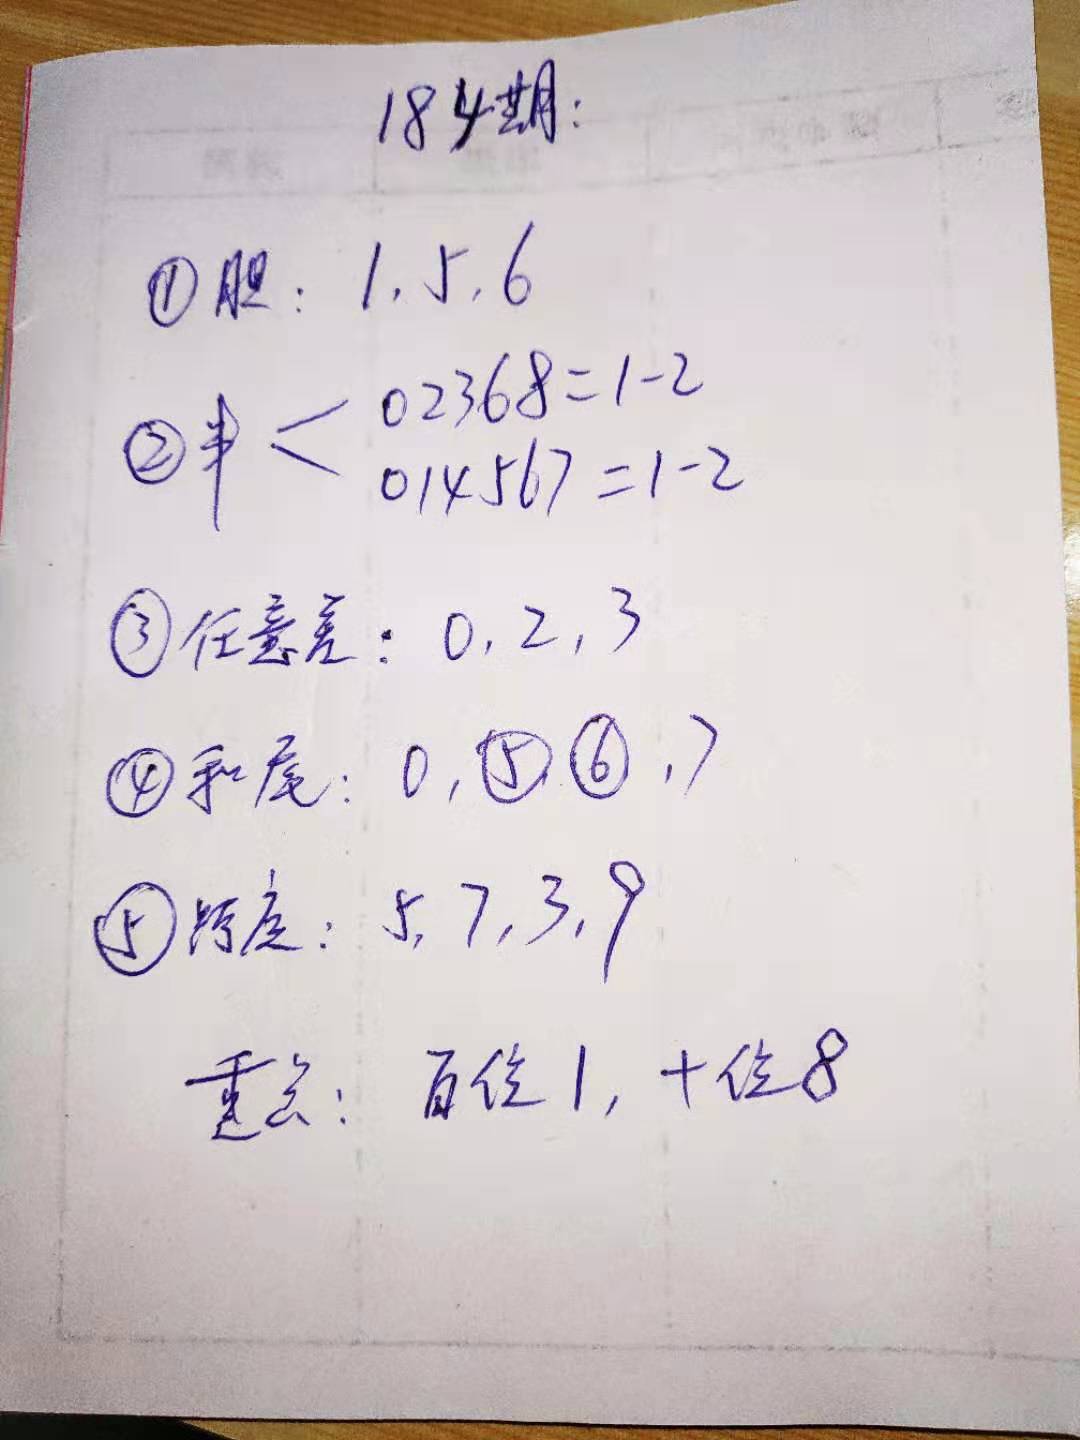 184期:
①胆: 1.5.6
②串< 02368=1-2
014567=1-2
③任意差: 0.2.3
④和尾: 0.⑤.⑥.7
⑤跨度: 5.7.3.9
重点: 百位1,十位8